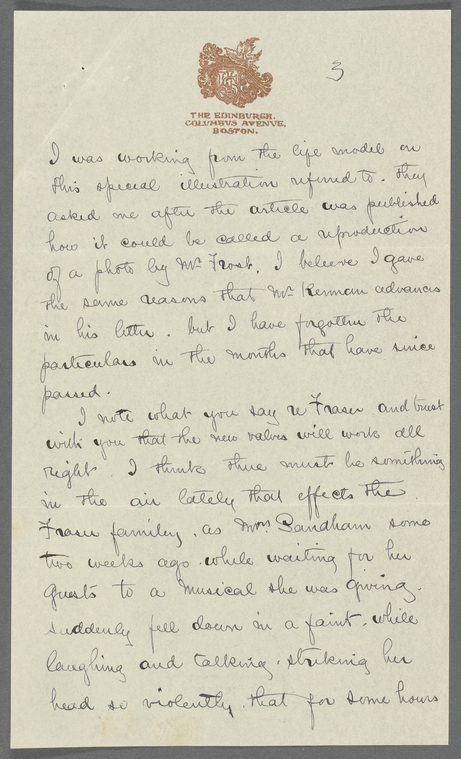 3
THE EDINBURGH.
COLUMBUS AVENUE,
BOSTON.
I was working from the life model on
this special illustration referred to. They
asked me after the article was published
how it could be called a reproduction
of a photo by Mr Frost, I believe I gave
the same reasons that Mr Kennan advances
in his letter. but I have forgotten the
particulars in the months that have since
passed.
I note what you say re Fraser and trust
with you that the new valves will work all
right. I think there must be something
in the air lately that effects the
Fraser family. as Mrs Sandham some
two weeks ago. while waiting for her
guests to a musical she was giving.
suddenly fell down in a faint. while
laughing and talking. striking her
head so violently. that for some hours